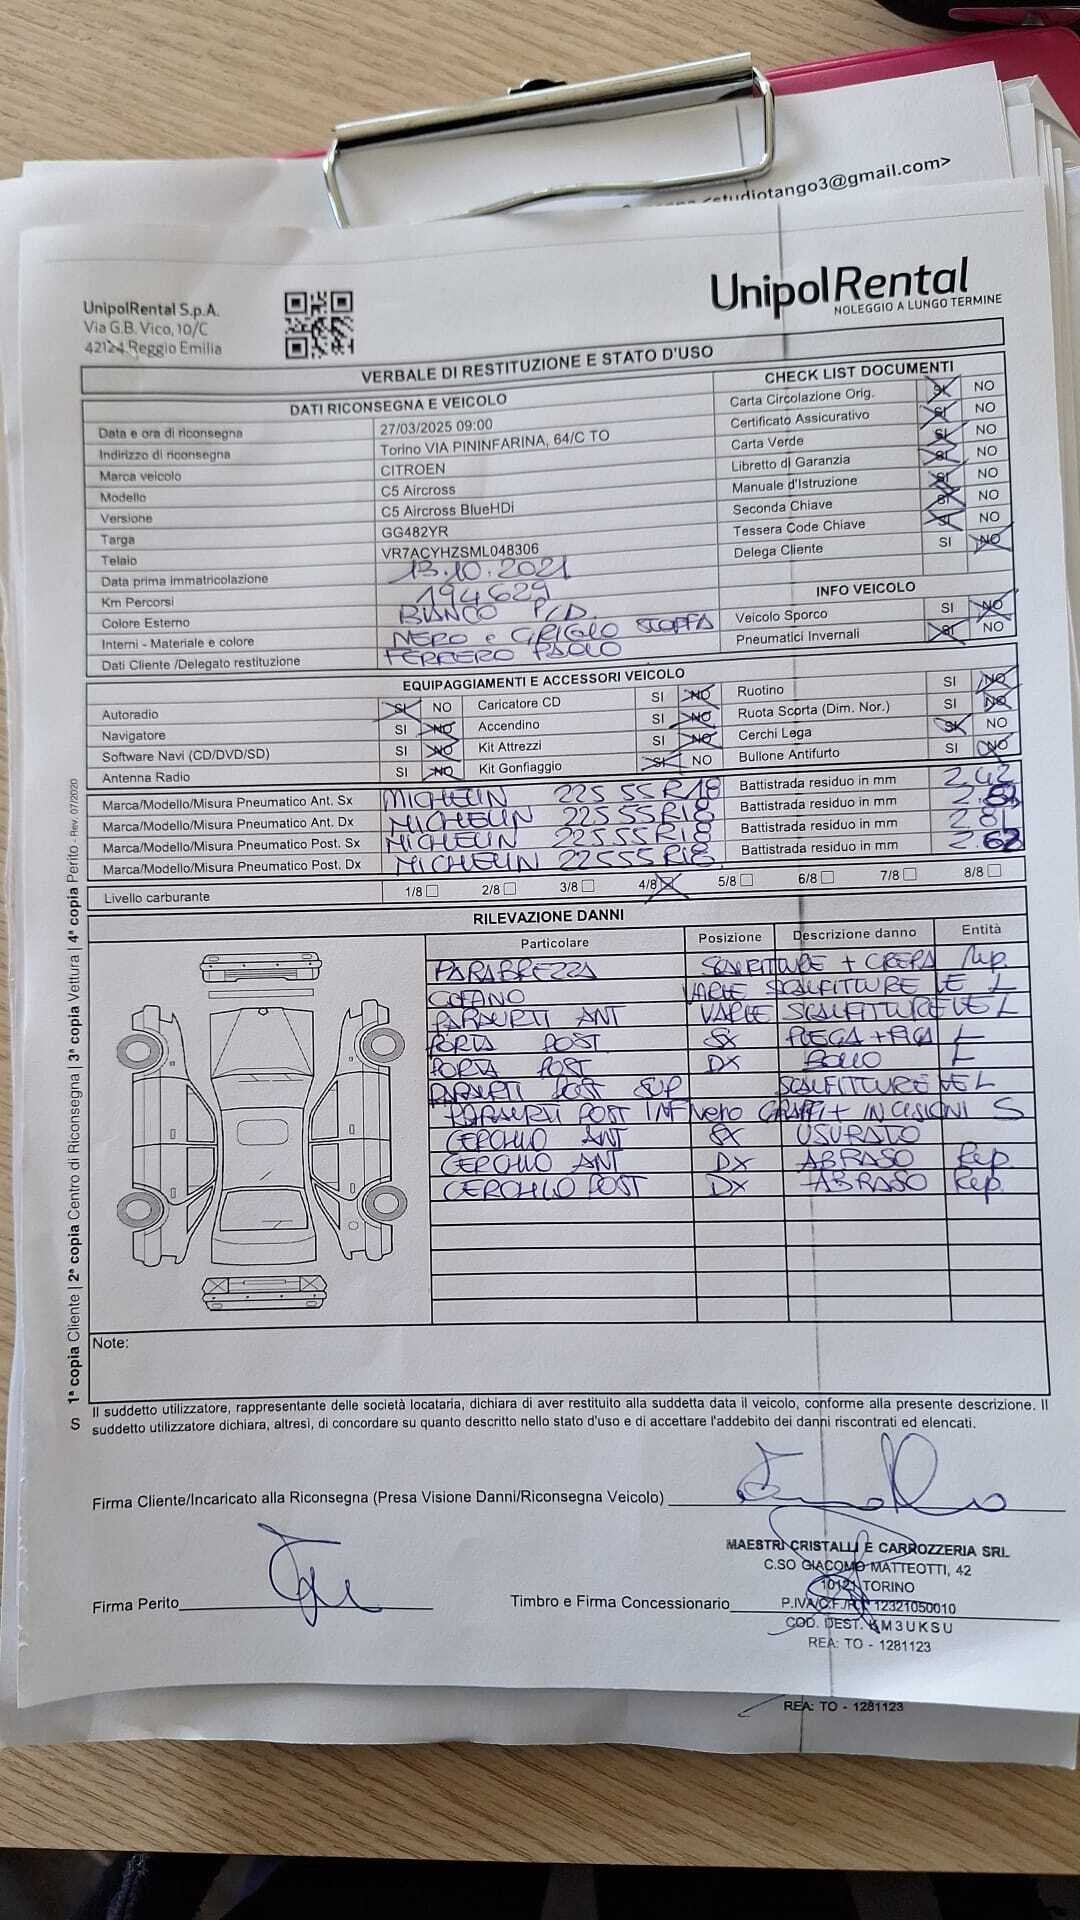 <studiotango3@gmail.com>
UnipolRental S.p.A.
Via G.B. Vico, 10/C
42124 Reggio Emilia
UnipolRental
NOLEGGIO A LUNGO TERMINE
VERBALE DI RESTITUZIONE E STATO D'USO
DATI RICONSEGNA E VEICOLO
Data e ora di riconsegna 27/03/2025 09:00
Indirizzo di riconsegna Torino VIA PININFARINA, 64/C TO
Marca veicolo CITROEN
Modello C5 Aircross
Versione C5 Aircross BlueHDi
Targa GG482YR
Telaio VR7ACYHZSML048306
Data prima immatricolazione 13.10.2021
Km Percorsi 194629
Colore Esterno BIANCO P/D.
Interni - Materiale e colore NERO e GRIGIO STOFFA
Dati Cliente /Delegato restituzione FERRERO PAOLO
CHECK LIST DOCUMENTI
Carta Circolazione Orig. SI NO
Certificato Assicurativo SI NO
Carta Verde SI NO
Libretto di Garanzia SI NO
Manuale d'Istruzione SI NO
Seconda Chiave SI NO
Tessera Code Chiave SI NO
Delega Cliente SI NO
INFO VEICOLO
Veicolo Sporco SI NO
Pneumatici Invernali SI NO
EQUIPAGGIAMENTI E ACCESSORI VEICOLO
Autoradio SI NO Caricatore CD SI NO Ruotino SI NO
Navigatore SI NO Accendino SI NO Ruota Scorta (Dim. Nor.) SI NO
Software Navi (CD/DVD/SD) SI NO Kit Attrezzi SI NO Cerchi Lega SI NO
Antenna Radio SI NO Kit Gonfiaggio SI NO Bullone Antifurto SI NO
Marca/Modello/Misura Pneumatico Ant. Sx MICHELIN 225 55 R18 Battistrada residuo in mm 2.42
Marca/Modello/Misura Pneumatico Ant. Dx MICHELIN 225 55 R18 Battistrada residuo in mm
Marca/Modello/Misura Pneumatico Post. Sx MICHELIN 225 55 R18 Battistrada residuo in mm 2.81
Marca/Modello/Misura Pneumatico Post. Dx MICHELIN 225 55 R18 Battistrada residuo in mm
Livello carburante 1/8 2/8 3/8 4/8 5/8 6/8 7/8 8/8
RILEVAZIONE DANNI
Particolare Posizione Descrizione danno Entità
PARABREZZA SCALFITURE + CREPA Rip.
COFANO VARIE SCALFITURE LE L
PARAURTI ANT VARIE SCALFITURE VE L
PORTA POST SX PIEGA + RIGA L
PORTA POST DX BOLLO L
PARAURTI POST SUP SCALFITURE VE L
PARAURTI POST INF nero GRAFFI + INCISIONI S
CERCHIO ANT SX USURATO
CERCHIO ANT DX ABRASO Rip.
CERCHIO POST DX ABRASO Rip.
Note:
Il suddetto utilizzatore, rappresentante delle società locataria, dichiara di aver restituito alla suddetta data il veicolo, conforme alla presente descrizione. Il
suddetto utilizzatore dichiara, altresì, di concordare su quanto descritto nello stato d'uso e di accettare l'addebito dei danni riscontrati ed elencati.
S
1ª copia Cliente | 2ª copia Centro di Riconsegna | 3ª copia Vettura | 4ª copia Perito - Rev. 07/2020
Firma Cliente/Incaricato alla Riconsegna (Presa Visione Danni/Riconsegna Veicolo)
Firma Perito
Timbro e Firma Concessionario
MAESTRI CRISTALLI E CARROZZERIA SRL
C.SO GIACOMO MATTEOTTI, 42
10121 TORINO
P.IVA/C.F./R.I. 12321050010
COD. DEST. KM3UKSU
REA: TO - 1281123
REA: TO - 1281123